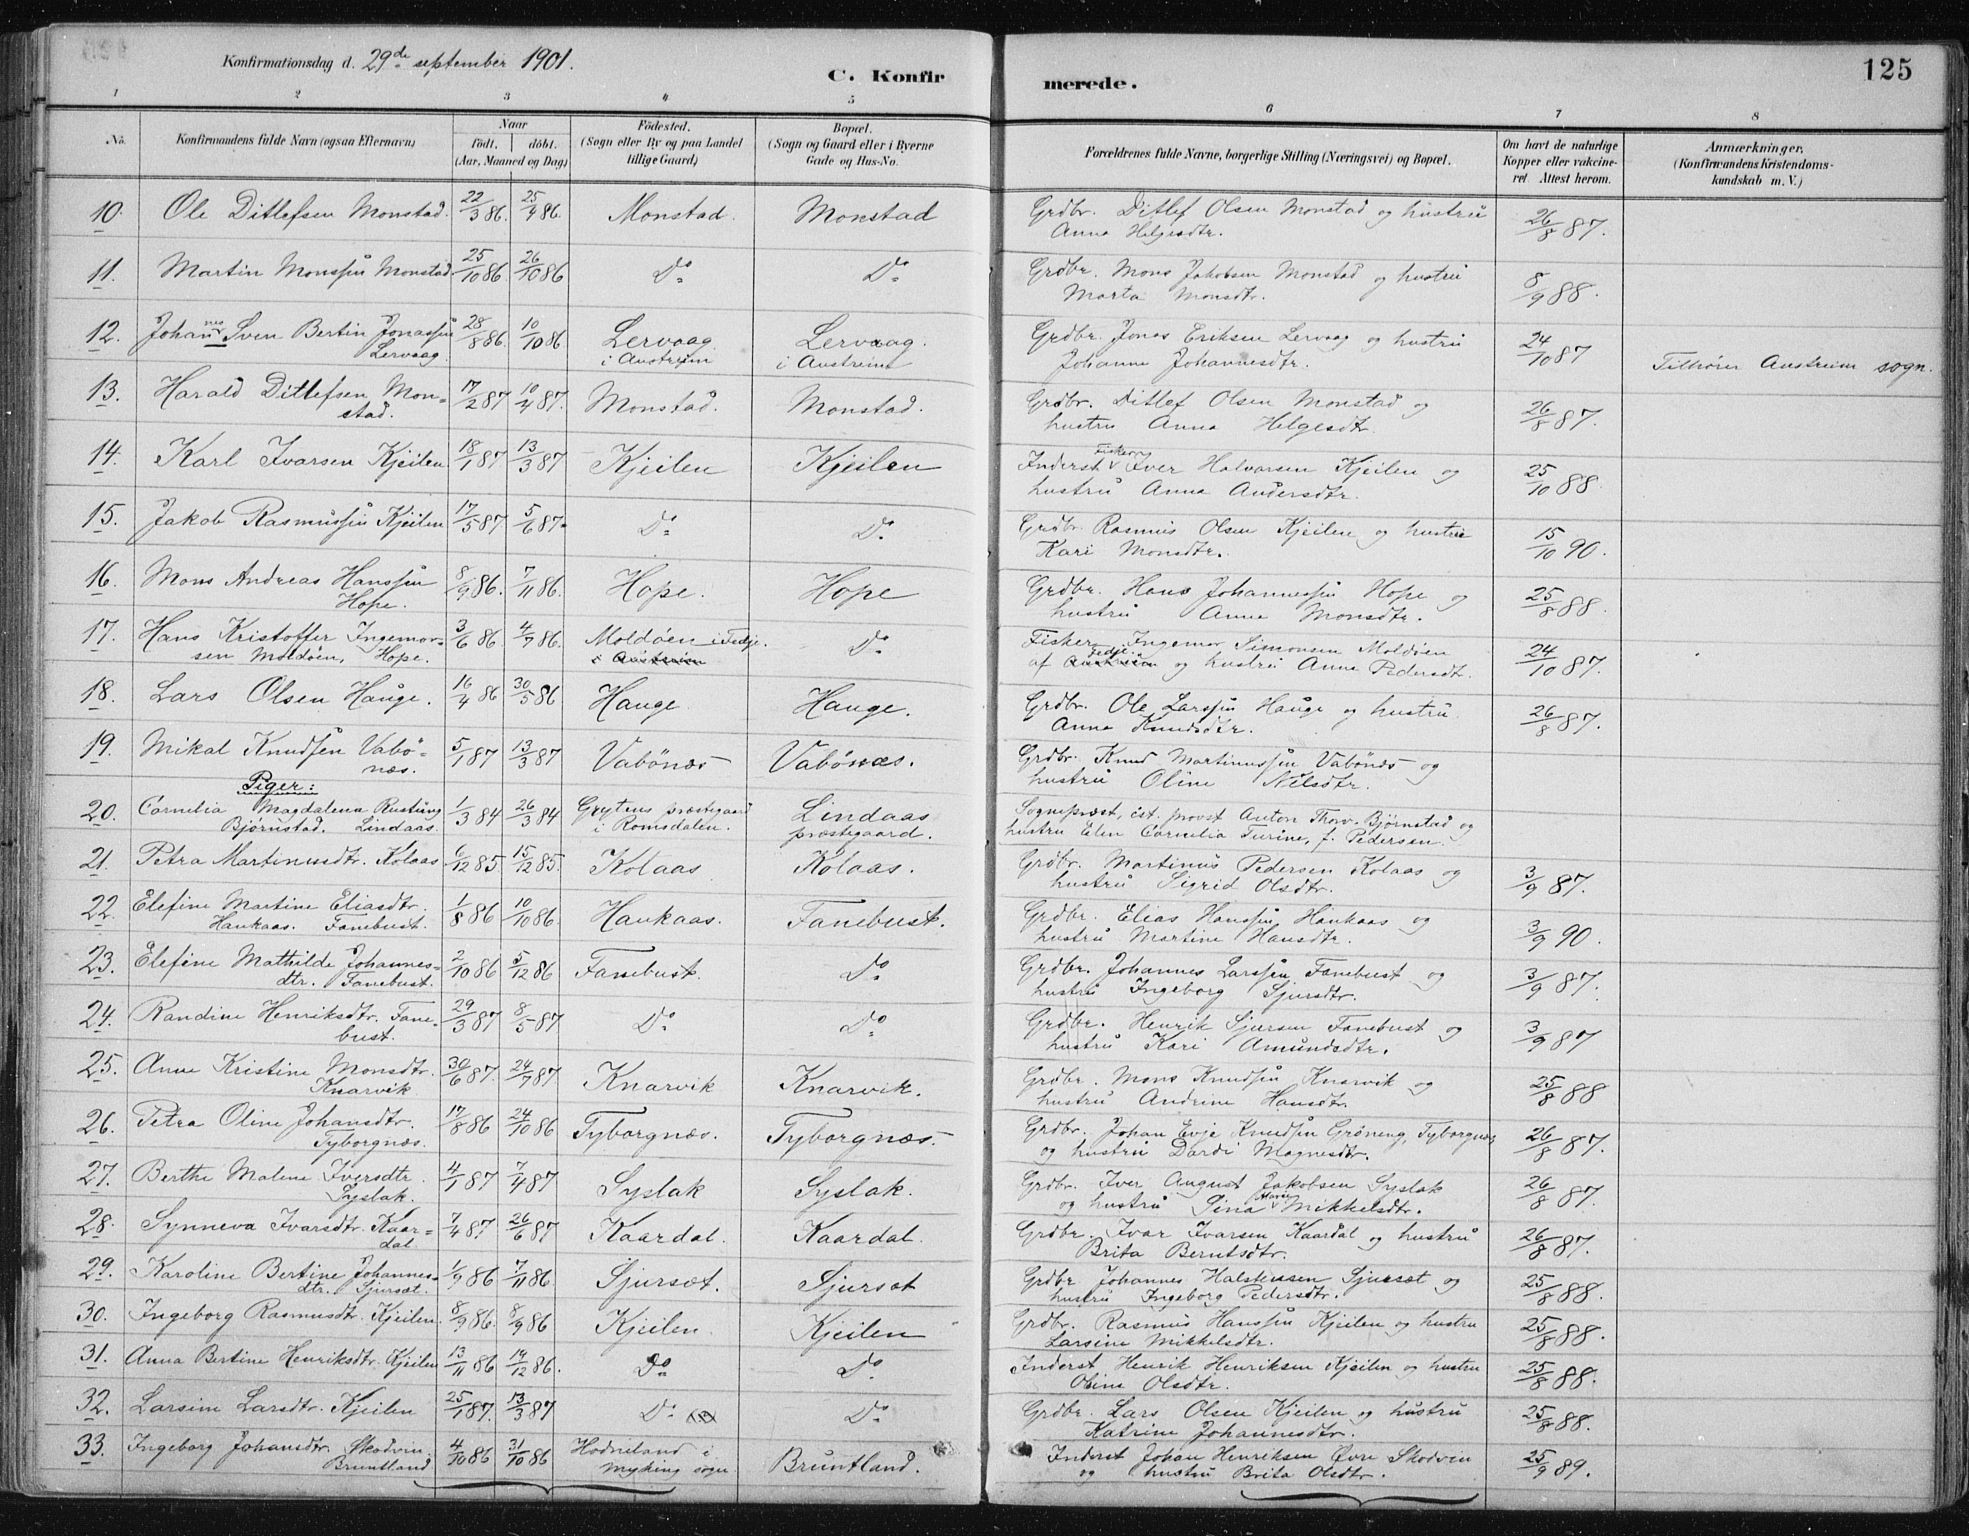 Konfirmationsdag d. 29de september 1901.
C. Konfirmerede.
125
1 2 3 4 5 6 7 8
No.
Konfirmandens fulde Navn (ogsaa Efternavn)
Naar
födt. döbt.
(Aar, Maaned og Dag)
Födested.
(Sogn eller By og paa Landet
tillige Gaard)
Bopæl.
(Sogn og Gaard eller i Byerne
Gade og Hus-No.
Forældrenes fulde Navne, borgerlige Stilling (Næringsvei) og Bopæl.
Om havt de naturlige
Kopper eller vakcine-
ret. Attest herom.
Anmærkninger,
(Konfirmandens Kristendoms-
kundskab m. V.)
10. Ole Ditlefsen Monstad. 22/3 86. 25/4 86. Monstad. Monstad Grdbr. Ditlef Olsen Monstad og hustru 26/8 87.
Anna Helgesdtr.
11. Martin Monssen Monstad 25/10 86 26/10 86 Do Do Grdbr. Mons Jakobsen Monstad og hustru 8/9 88.
Marta Monsdtr.
12. Johannes Sven Bertin Jonassen 28/8 86. 10/10 86. Lervaag Lervaag. Grdbr. Jonas Eriksen Lervaag og hustru 24/10 87 Tilhører Austreim sogn.
Lervaag. i Austreim i Austreim Johanne Johannesdtr.
13. Harald Ditlefsen Mon- 17/2 87 10/4 87. Monstad. Monstad. Grdbr. Ditlef Olsen Monstad og 26/8 87.
stad. hustru Anna Helgesdtr.
14. Karl Ivarsen Kjeilen 18/1 87 13/3 87 Kjeilen Kjeilen Inderst Fisker Iver Halvorsen Kjeilen og 25/10 88.
hustru Anna Andersdtr.
15. Jakob Rasmussen Kjeilen 17/5 87. 5/6 87. Do Do Grdbr. Rasmus Olsen Kjeilen og hustru 15/10 90.
Kari Monsdtr.
16. Mons Andreas Hanssen 8/9 86. 7/11 86. Hope. Hope Grdbr. Hans Johannessen Hope og 25/8 88.
Hope. hustru Anna Monsdtr.
17. Hans Kristoffer Ingemor- 3/6 86 4/7 86. Moldøen i Fedje. Do Fisker Ingemor Simonsen Moldøen 24/10 87.
sen Moldøen, Hope. i Austreim af Austreim Fedje og hustru Anna Pedersdtr.
18. Lars Olsen Hauge. 16/4 86 30/5 86 Hauge Hauge. Grdbr. Ole Larssen Hauge og hustru 26/8 87.
Anna Knudsdtr.
19. Mikal Knudsen Vabö- 5/1 87 13/3 87 Vabönæs Vabönæs. Grdbr. Knud Martinussen Vabönæs og
næs. hustru Oline Nilsdtr.
Piger:
20. Cornelia Magdalena Rustung 1/3 84 26/3 84 Grytens præstegaard Lindaas Sognepræst, cst. provst Anton Thorv. Bjørnstad og
Bjørnstad. Lindaas. i Romsdalen. præstegaard. hustru Elen Cornelia Turine, f. Pedersen.
21. Petra Martinusdtr. Kolaas 6/12 85 15/12 85. Kolaas Kolaas. Grdbr. Martinus Pedersen Kolaas og 3/9 87.
hustru Sigrid Olsdtr.
22. Elefine Martine Eliasdtr. 1/8 86 10/10 86. Haukaas. Fanebust. Grdbr. Elias Hanssen Haukaas og 3/9 90.
Haukaas. Fanebust. hustru Martine Hansdtr.
23. Elefine Mathilde Johannes- 2/10 86 5/12 86 Fanebust. Do Grdbr. Johannes Larssen Fanebust og 3/9 87.
dtr. Fanebust. hustru Ingeborg Sjursdtr.
24. Randine Henriksdtr. Fane- 29/3 87 8/5 87 Do Do Grdbr. Henrik Sjursen Fanebust og 3/9 87
bust. hustru Kari Amundsdtr.
25. Anne Kristine Monsdtr. 30/6 87. 24/7 87 Knarvik Knarvik. Grdbr. Mons Knudsen Knarvik og 25/8 88
Knarvik hustru Andrine Hansdtr.
26. Petra Oline Johansdtr. 17/8 86 24/10 86 Tyborgnæs. Tyborgnæs. Grdbr. Johan Evje Knudsen Gröneng, Tyborgnæs 26/8 87.
Tyborgnæs. og hustru Dardi Magnesdtr.
27. Berthe Malene Iversdtr 4/1 87 7/4 87 Syslak Syslak. Grdbr. Iver August Jakobsen Syslak 26/8 87.
Syslak. og hustru Sina Marie Mikkelsdtr.
28. Synneva Ivarsdtr. Kaar- 7/4 87. 26/6 87 Kaardal. Kaardal. Grdbr. Ivar Ivarsen Kaardal og hustru 26/8 87.
dal Brita Berntsdtr.
29. Karoline Bertine Johannes- 1/9 86 7/11 86. Sjursæt. Sjursæt Grdbr. Johannes Halsteinsen Sjursæt og 25/8 88.
dtr. Sjursæt. hustru Ingeborg Pedersdtr.
30. Ingeborg Rasmusdtr. Kjeilen. 8/9 86. 8/9 86 Kjeilen. Kjeilen Grdbr. Rasmus Hanssen Kjeilen og hustru 25/8 88.
Larsine Mikkelsdtr.
31. Anna Bertine Henriksdtr. Kjeilen 13/11 86 19/12 86. Do Do Inderst Henrik Henriksen Kjeilen og hustru 25/8 88.
Oline Olsdtr.
32. Larsine Larsdtr. Kjeilen 25/1 87. 13/3 87 Do Do Grdbr. Lars Olsen Kjeilen og hustru 25/8 88.
Katrine Johannesdtr.
33. Ingeborg Johansdtr. Skodvin. 4/10 86 31/10 86 Hodneland i Bruntland. Inderst Johan Henriksen Øvre Skodvin 25/9 89.
Bruntland Myking sogn og hustru Brita Olsdtr.